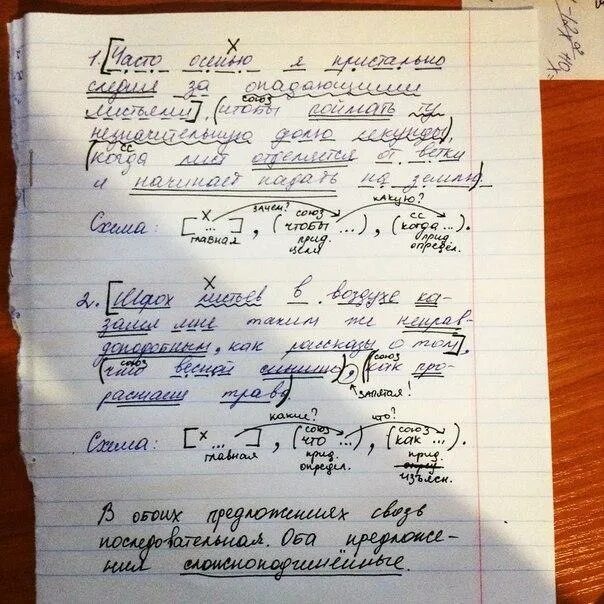 1. [Часто осенью я пристально
следил за опадающими
листьями], (чтобы поймать ту
союз
незначительную долю секунды),
(когда лист отделяется от ветки
сс
и начинает падать на землю).
Схема: [х ...], (чтобы ...), (когда ...).
зачем? союз какую? сс
главная прид. цели прид. определ.
2. [Шорох листьев в воздухе ка-
зался мне таким же неправ-
доподобным, как рассказы о том],
(что весной слышно), (как про-
союз союз
растает трава)
запятая!
Схема: [х ...], (что ...), (как ...).
какие? союз что? союз
главная прид. определ. прид. изъясн.
В обоих предложениях связь
последовательная. Оба предложе-
ния сложноподчинённые.